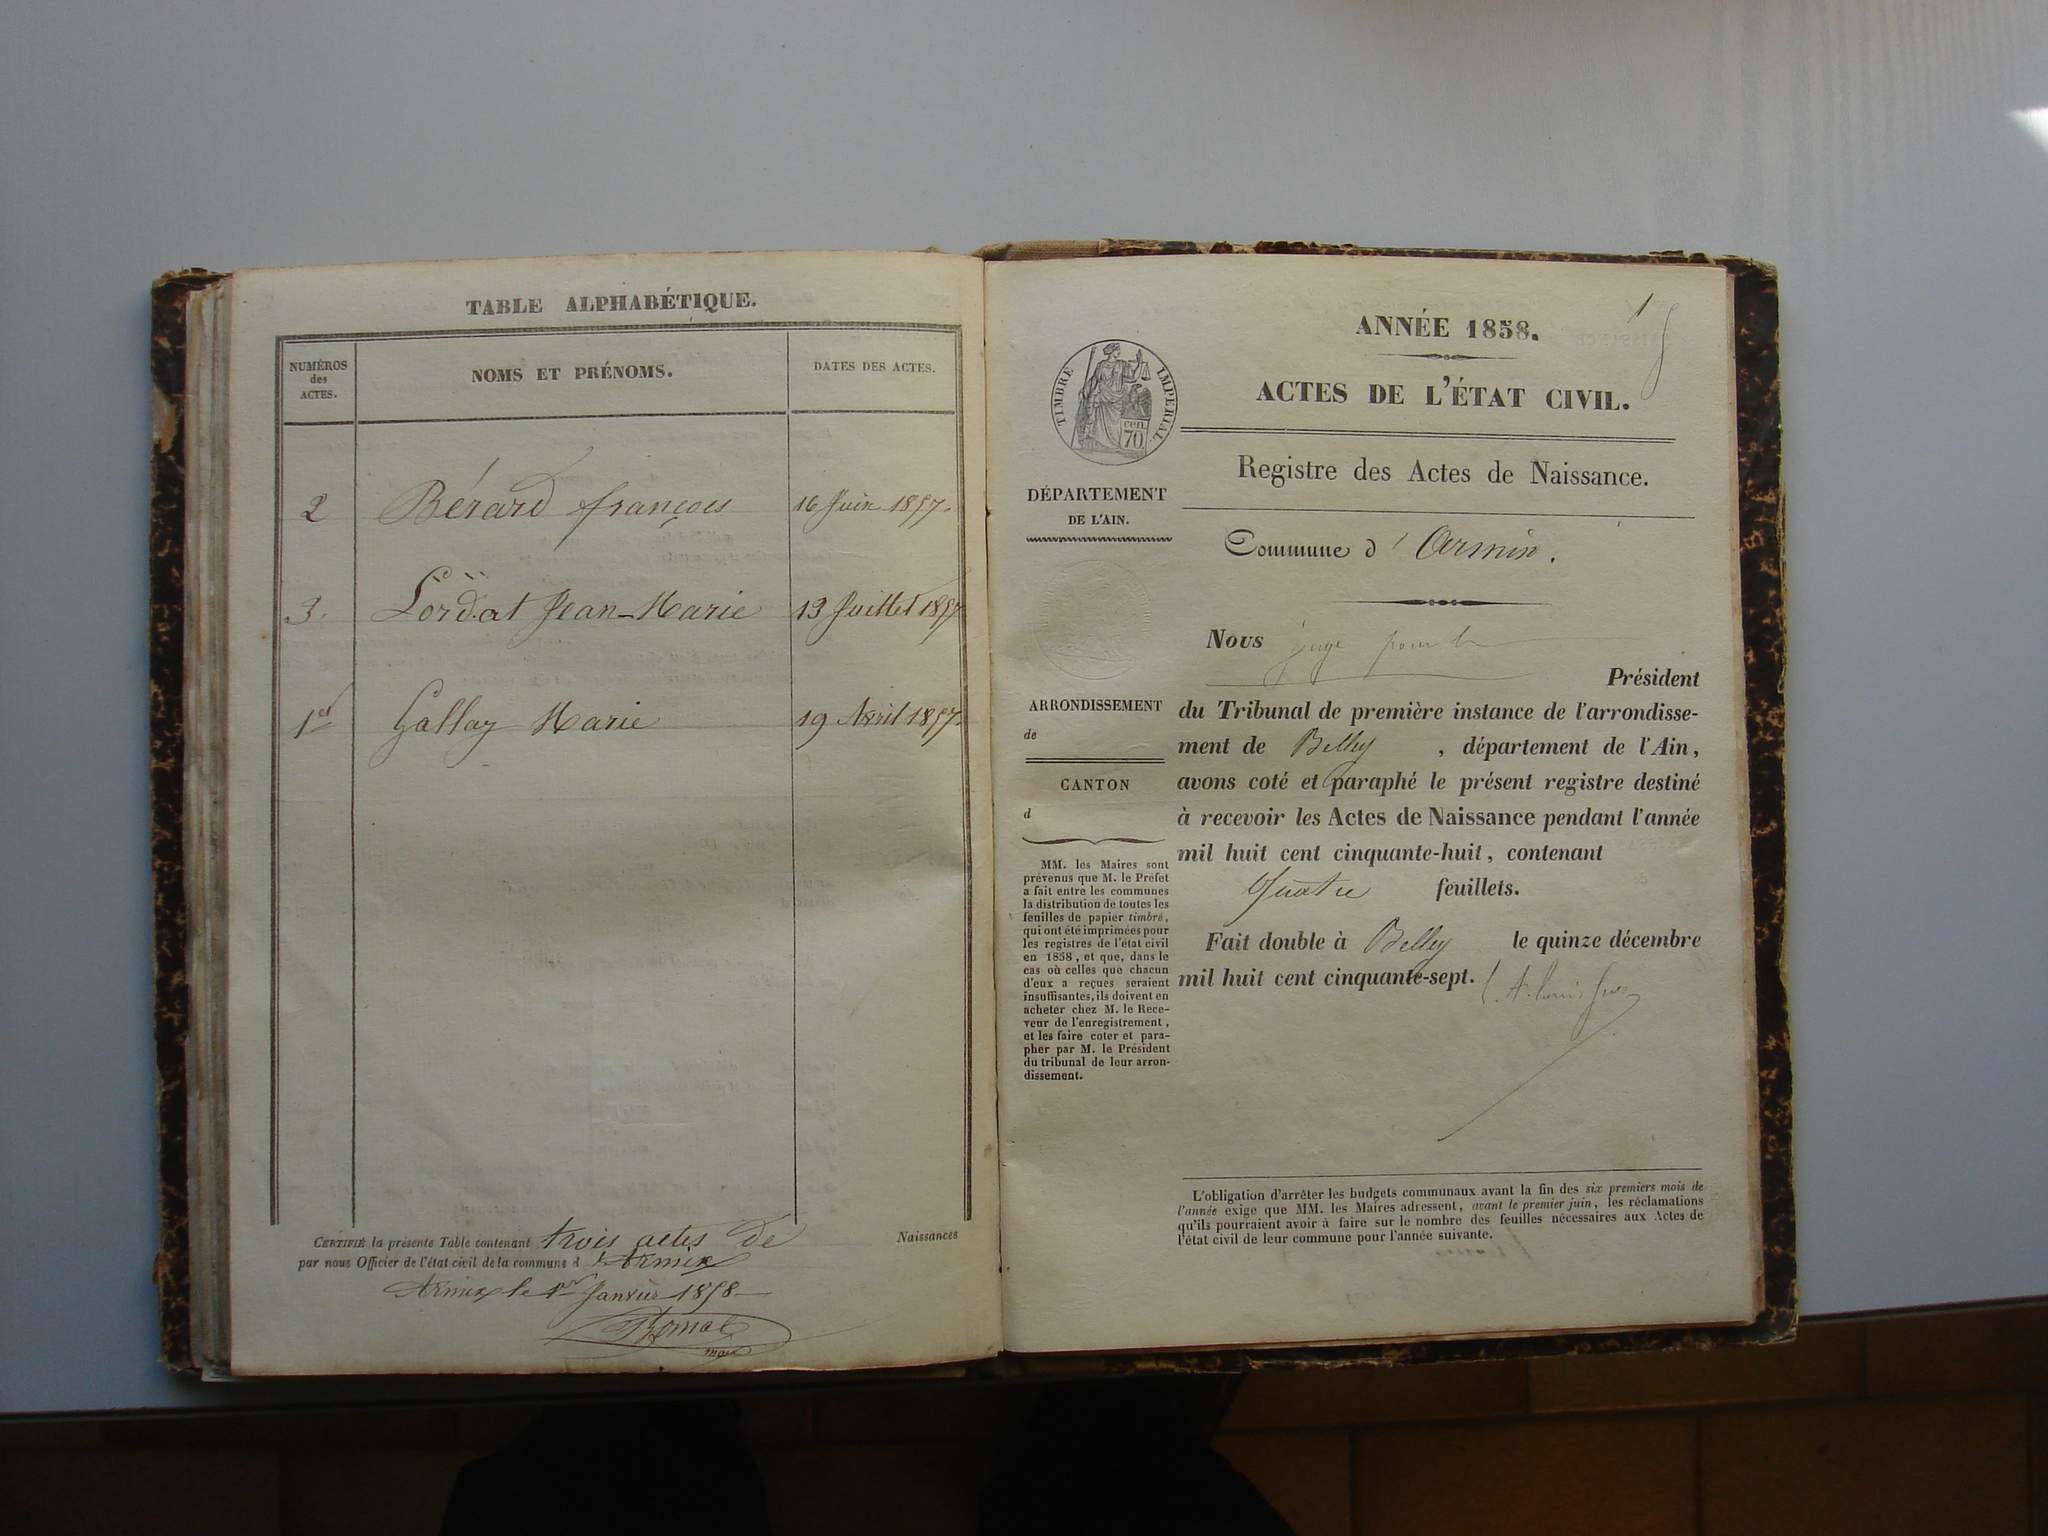 TABLE ALPHABÉTIQUE.
NUMÉROS
des
ACTES.
NOMS ET PRÉNOMS.
DATES DES ACTES.
2 Bérard françois 16 Juin 1857.
3. Lordat Jean-Marie 13 Juillet 1857
1er Gallay Marie 19 Avril 1857.
CERTIFIÉ la présente Table contenant trois actes de Naissances
par nous Officier de l'état civil de la commune d'Armix
Armix le 1er Janvier 1858
maire
1
ANNÉE 1858.
ACTES DE L'ÉTAT CIVIL.
TIMBRE IMPERIAL.
cen.
70.
Registre des Actes de Naissance.
DÉPARTEMENT
DE L'AIN.
Commune d'Armix.
Nous juge pour le
Président
ARRONDISSEMENT
de
CANTON
d
du Tribunal de première instance de l'arrondisse-
ment de Belley, département de l'Ain,
avons coté et paraphé le présent registre destiné
à recevoir les Actes de Naissance pendant l'année
mil huit cent cinquante-huit, contenant
Quatre feuillets.
Fait double à Belley le quinze décembre
mil huit cent cinquante-sept.
MM. les Maires sont
prévenus que M. le Préfet
a fait entre les communes
la distribution de toutes les
feuilles de papier timbré,
qui ont été imprimées pour
les registres de l'état civil
en 1858, et que, dans le
cas où celles que chacun
d'eux a reçues seraient
insuffisantes, ils doivent en
acheter chez M. le Rece-
veur de l'enregistrement,
et les faire coter et para-
pher par M. le Président
du tribunal de leur arron-
dissement.
L'obligation d'arrêter les budgets communaux avant la fin des six premiers mois de
l'année exige que MM. les Maires adressent, avant le premier juin, les réclamations
qu'ils pourraient avoir à faire sur le nombre des feuilles nécessaires aux Actes de
l'état civil de leur commune pour l'année suivante.